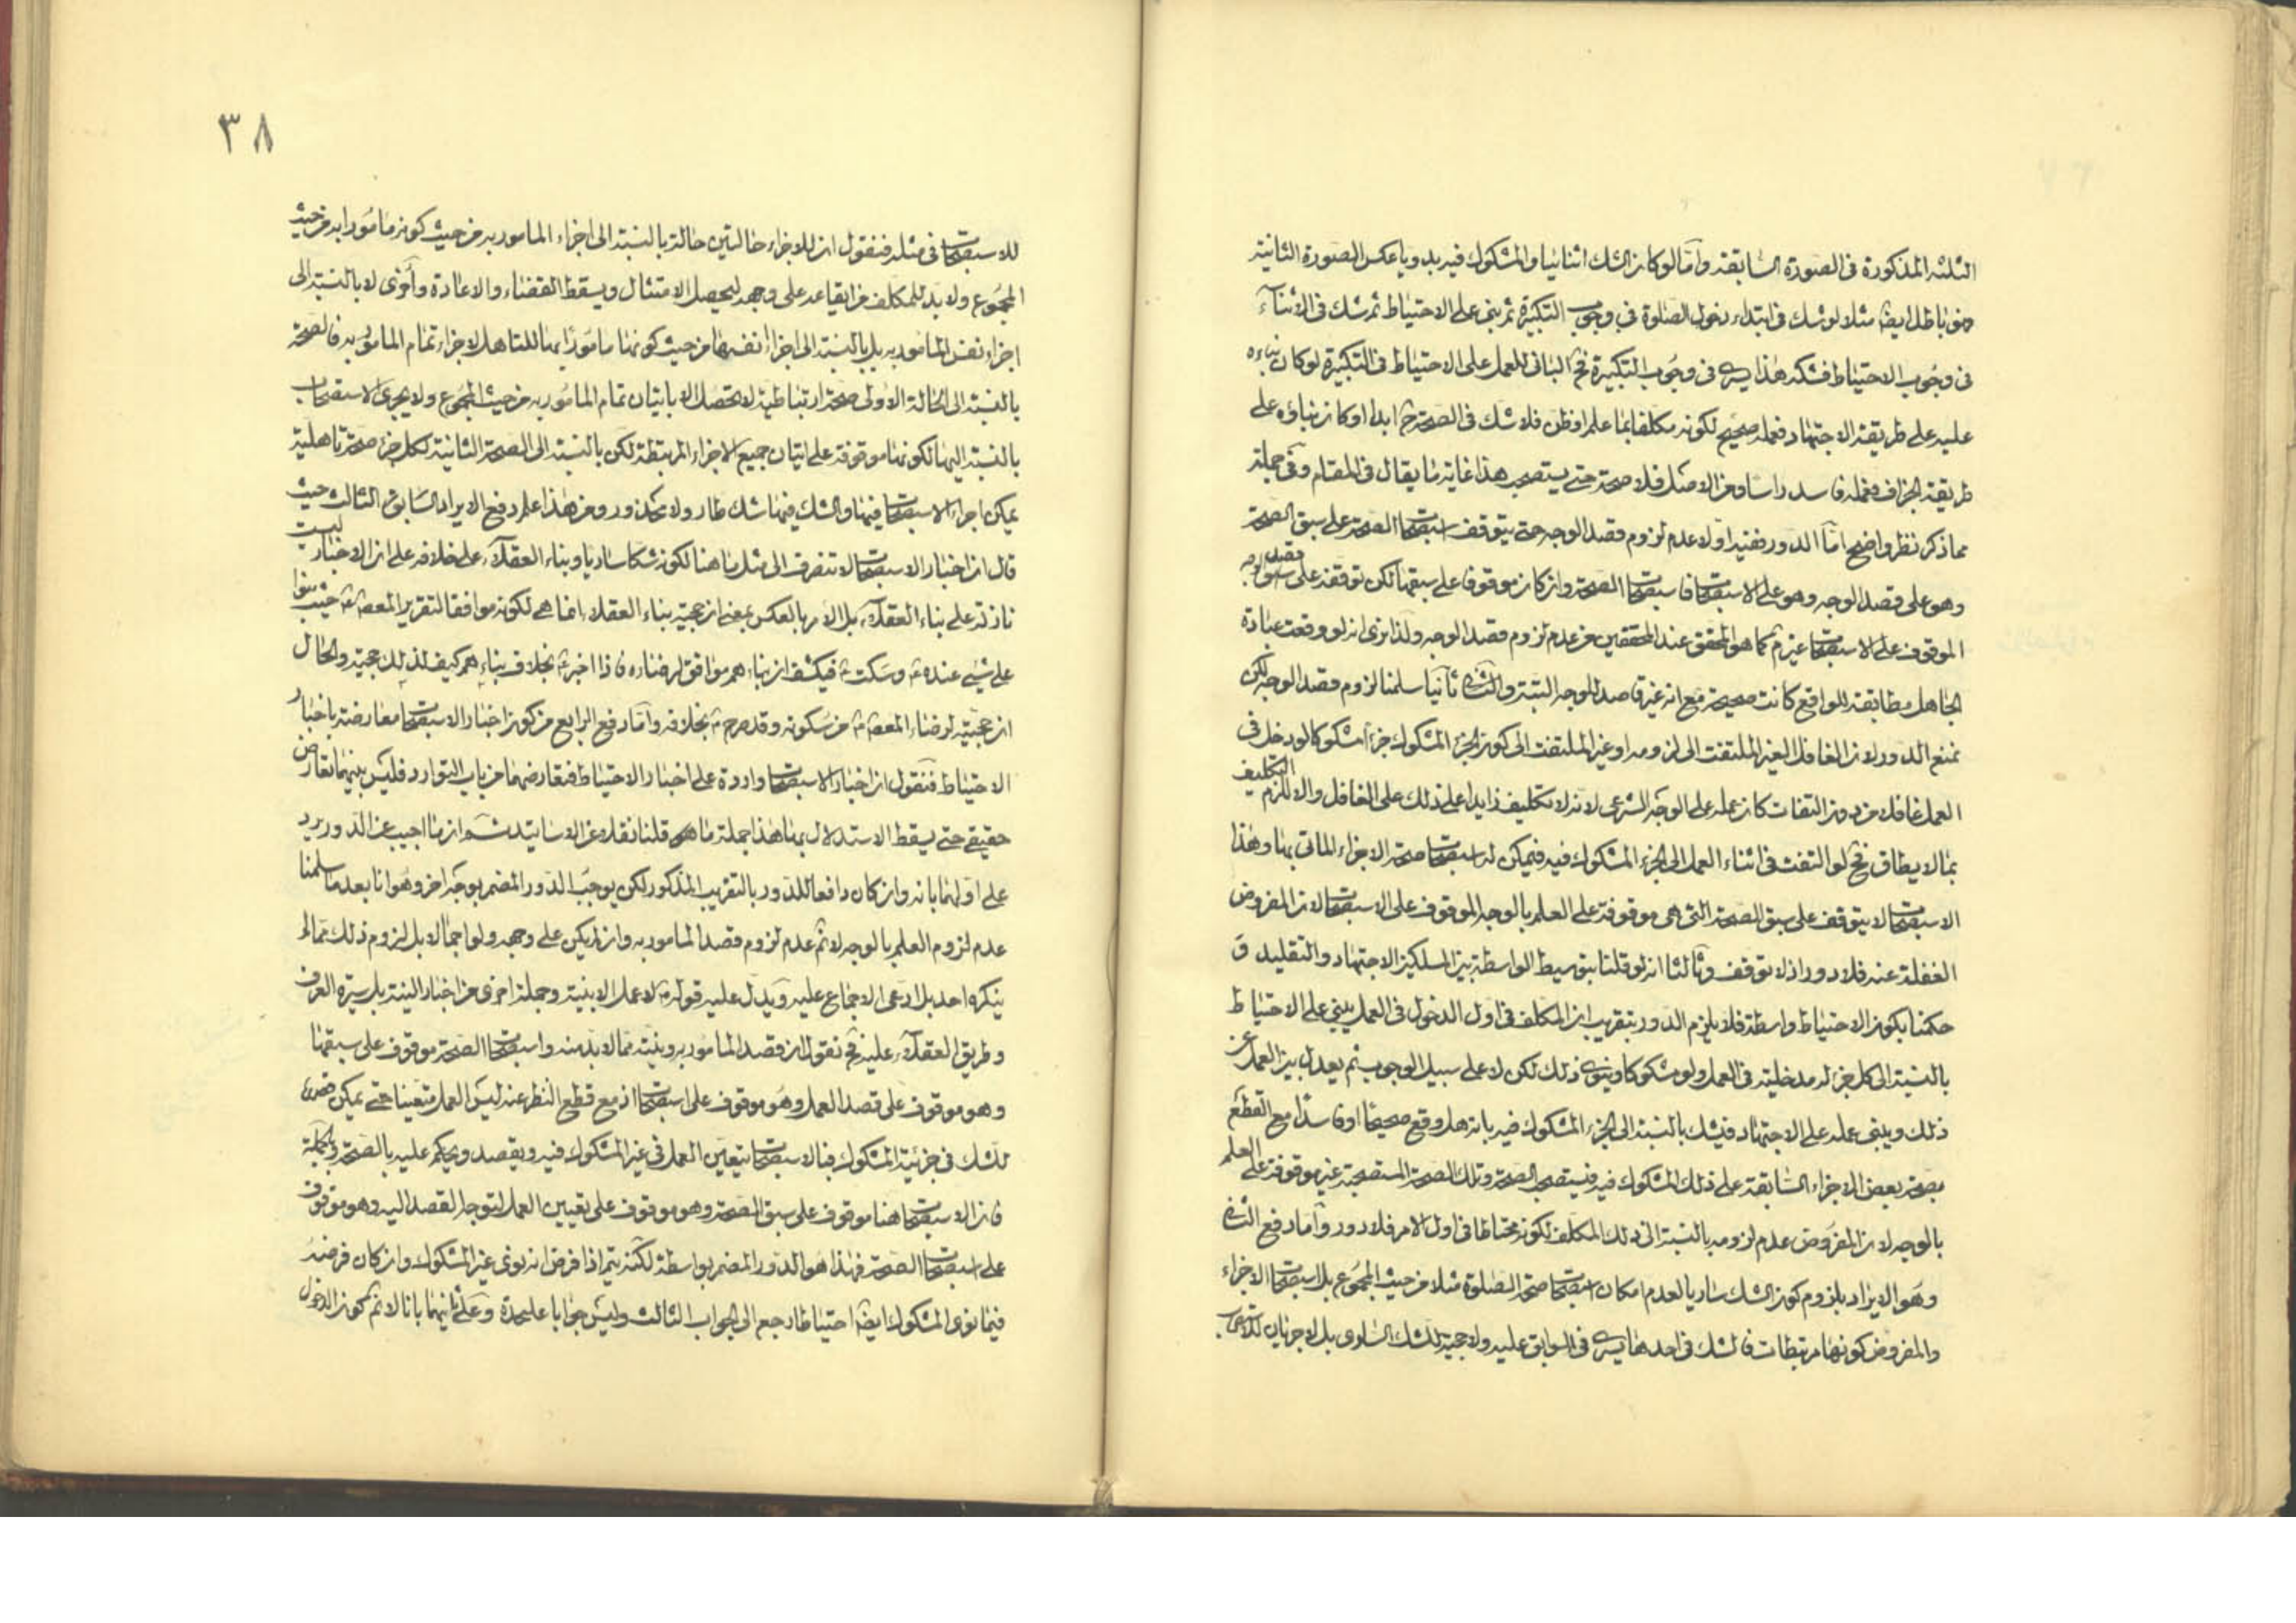 الثلثة المذكورة فى الصورة السابقة وامّا لو كان الشك اثنائيا والمشكوك فيه بدويا عكس الصورة الثانية
فهو باطل ايضا مثلا لو شك فى ابتداء دخول الصلوة فى وجوب التكبيرة ثم بنى على الاحتياط ثم شك فى الاثناء
فى وجوب الاحتياط فشكه هذا يسرى فى وجوب التكبيرة فح البانى للعمل على الاحتياط فى التكبيرة لو كان بناءه
عليه على طريقة الاجتهاد فعمله صحيح لكونه مكلفا بما علم او ظن فلا شك فى الصحة ح ابدا او كان بناؤه على
طريقة الجزاف فعمله فاسد راسا ومن الاصل فلا صحة حتى يستصحب هذا غاية ما يقال فى المقام وفى جملة
مما ذكر نظر واضح امّا الدور ففيه اولا عدم لزوم قصد الوجه حتى يتوقف استصحاب الصحة على سبق الصحة
وهو على قصد الوجه وهو على الاستصحاب فاستصحاب الصحة وان كان موقوفا على سبقها لكن توقفه على قصد الوجه
الموقوف على الاستصحاب غير م كما هو المحقق عند المحققين من عدم لزوم قصد الوجه ولذا نرى انه لو وقعت عبادة
الجاهل مطابقة للواقع كانت صحيحة مع انه غير قاصد للوجه البتة وثانيا سلمنا لزوم قصد الوجه لكن
نمنع الدور لان الغافل الغير الملتفت الى لزومه او غير الملتفت الى كون الجزء المشكوك جزء مشكوكا لو دخل فى
العمل غافلا من دون التفات كان عمله على الوجه الشرعى لانه لا تكليف زايدا على ذلك على الغافل والا للزم التكليف
بما لا يطاق فح لو التفت فى اثناء العمل الى الجزء المشكوك فيه فيمكن له استصحاب صحة الاجزاء الماتى بها وهذا
الاستصحاب لا يتوقف على سبق الصحة التى هى موقوفة على العلم بالوجه الموقوف على الاستصحاب لان المفروض
الغفلة عنه فلا دور اذ لا توقف وثالثا انه لو قلنا بتوسيط الواسطة بين المسلكين الاجتهاد والتقليد و
حكمنا بكون الاحتياط واسطة فلا يلزم الدور بتقريب ان المكلف فى اول الدخول فى العمل يبنى على الاحتياط
بالنسبة الى كل جزء له مدخلية فى العمل ولو مشكوكا وينوى ذلك لكن لا على سبيل الوجوب ثم يعدل بين العمل عن
ذلك ويبنى عمله على الاجتهاد فيشك بالنسبة الى الجزء المشكوك فيه بانه هل وقع صحيحا او فاسدا مع القطع
بصحة بعض الاجزاء السابقة على ذلك المشكوك فيه فيستصحب الصحة وتلك الصحة المستصحبة غير موقوفة على العلم
بالوجه لان المفروض عدم لزومه بالنسبة الى ذلك المكلف لكونه محتاطا فى اول الامر فلا دور وامّا دفع الثانى
وهو الايراد بلزوم كون الشك ساريا لعدم امكان استصحاب صحة الصلوة مثلا من حيث المجموع بل استصحاب الاجزاء
والمفروض كونها مرتبطات فالشك فى احدها يسرى فى السابق عليه ولا حجية للشك السارى بل لا جريان
٣٨
للاستصحاب فى مثله فنقول ان للاجزاء حالتين حالة بالنسبة الى اجزاء المامور به من حيث كونه مامورا به من حيث
المجموع ولا بد للمكلف من ايقاعه على وجهه ليحصل الامتثال ويسقط القضاء والاعادة واخرى لا بالنسبة الى
اجزاء نفس المامور به بل بالنسبة الى اجزاء انفسها من حيث كونها مامورا بها للتاهل لاجزاء تمام المامور به فالصحة
بالنسبة الى الحالة الاولى صحة ارتباطية لا تحصل الا باتيان تمام المامور به من حيث المجموع ولا يجرى الاستصحاب
بالنسبة اليها لكونها موقوفة على اتيان جميع الاجزاء المرتبطة لكن بالنسبة الى الصحة الثانية لكل جزء صحة تاهلية
يمكن اجراء الاستصحاب فيها والشك فيها شك طار ولا محذور ومن هذا علم دفع الايراد السابق الثالث حيث
قال ان اخبار الاستصحاب لا تنصرف الى مثل ما هنا لكونه شكا ساريا وبناء العقلاء على خلافه على ان الاخبار ليست
نازلة على بناء العقلاء بل الامر بالعكس بمعنى ان حجية بناء العقلاء انما هى لكونه موافقا لتقرير المعصوم ع حيث بنوا
على شئ عنده ع وسكت ع فيكشف ان بناءهم موافق لرضاه فاذا اخبر ع بخلاف بناءهم كيف لذلك حجية والحال
ان حجيته لرضاء المعصوم ع من سكوته وقد صرح ع بخلافه وامّا دفع الرابع من كون اخبار الاستصحاب معارضة باخبار
الاحتياط فنقول ان اخبار الاستصحاب واردة على اخبار الاحتياط فتعارضهما من باب التوارد فليس بينهما تعارض
حقيقى حتى يسقط الاستدلال بها هذا جملة ما قلنا نقلا عن الاساتيد ثم ان ما اجيب عن الدور يرد
على اولها بانه وان كان دافعا للدور بالتقريب المذكور لكن يوجب الدور المضمر بوجه اخر وهو انا بعد ما سلمنا
عدم لزوم العلم بالوجه لا نم عدم لزوم قصد المامور به وان لم يكن على وجهه ولو اجمالا بل لزوم ذلك مما لم
ينكره احد بل ادعى الاجماع عليه ويدل عليه قوله ع لا عمل الا بنية وجملة اخرى من اخبار النية بل سيرة العرف
وطريق العقلاء عليه فح نقول ان قصد المامور به ونيته مما لا بد منه واستصحاب الصحة موقوف على سبقها
وهو موقوف على قصد العمل وهو موقوف على استصحاب اذ مع قطع النظر عنه ليس العمل متعينا حتى يمكن قصده
للشك فى جزئية المشكوك فبالاستصحاب يتعين العمل فى غير المشكوك فيه ويقصد ويحكم عليه بالصحة وبالجملة
فان الاستصحاب هنا موقوف على سبق الصحة وهو موقوف على تعيين العمل لتوجه القصد اليه وهو موقوف
على استصحاب الصحة فهذا هو الدور المضمر بواسطة لكنه يتم اذا فرض انه نوى غير المشكوك وان كان فرضه
فيما نوى المشكوك ايضا احتياطا رجع الى الجواب الثالث وليس جوابا عليحدة وعلى ثانيهما بانا لا نم كون الدخول